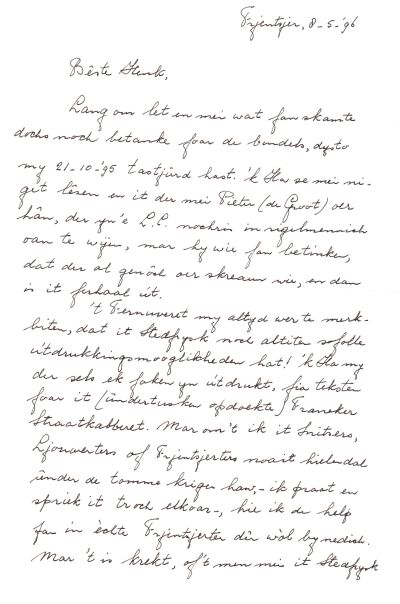 Frjentsjer, 8-5-'96
Bêste Henk,
Lang om let en mei wat fan skamte
dochs noch betanke foar de bundels, dysto
my 21-10-'95 tastjûrd hast. 'k Ha se mei ni-
get lêzen en it der mei Pieter (de Groot) oer
hân, der yn'e L.C. nochris in rigelmennich
oan te wijen, mar hy wie fan betinken,
dat der al genôch oer skreaun wie, en dan
is it ferhaal út.
't Fernuveret my altyd wer te merk-
biten, dat it Stedfrysk noch altiten sofolle
útdrukkingsmooglikheden hat! 'k Ha my
der sels ek faken yn útdrukt, fia teksten
foar it (ûndertusken opdoekte) Franeker
Straatkabberet. Mar om't ik it Snitsers,
Ljouwerters of Frjentsjerters noait hielendal
ûnder de tomme krigen haw, - ik praat en
spriek it troch elkoar -, hie ik de help
fan in èchte Frjentsjerter dêr wòl by nedich.
Mar 't is krekt, of't men mei it Stedfrysk